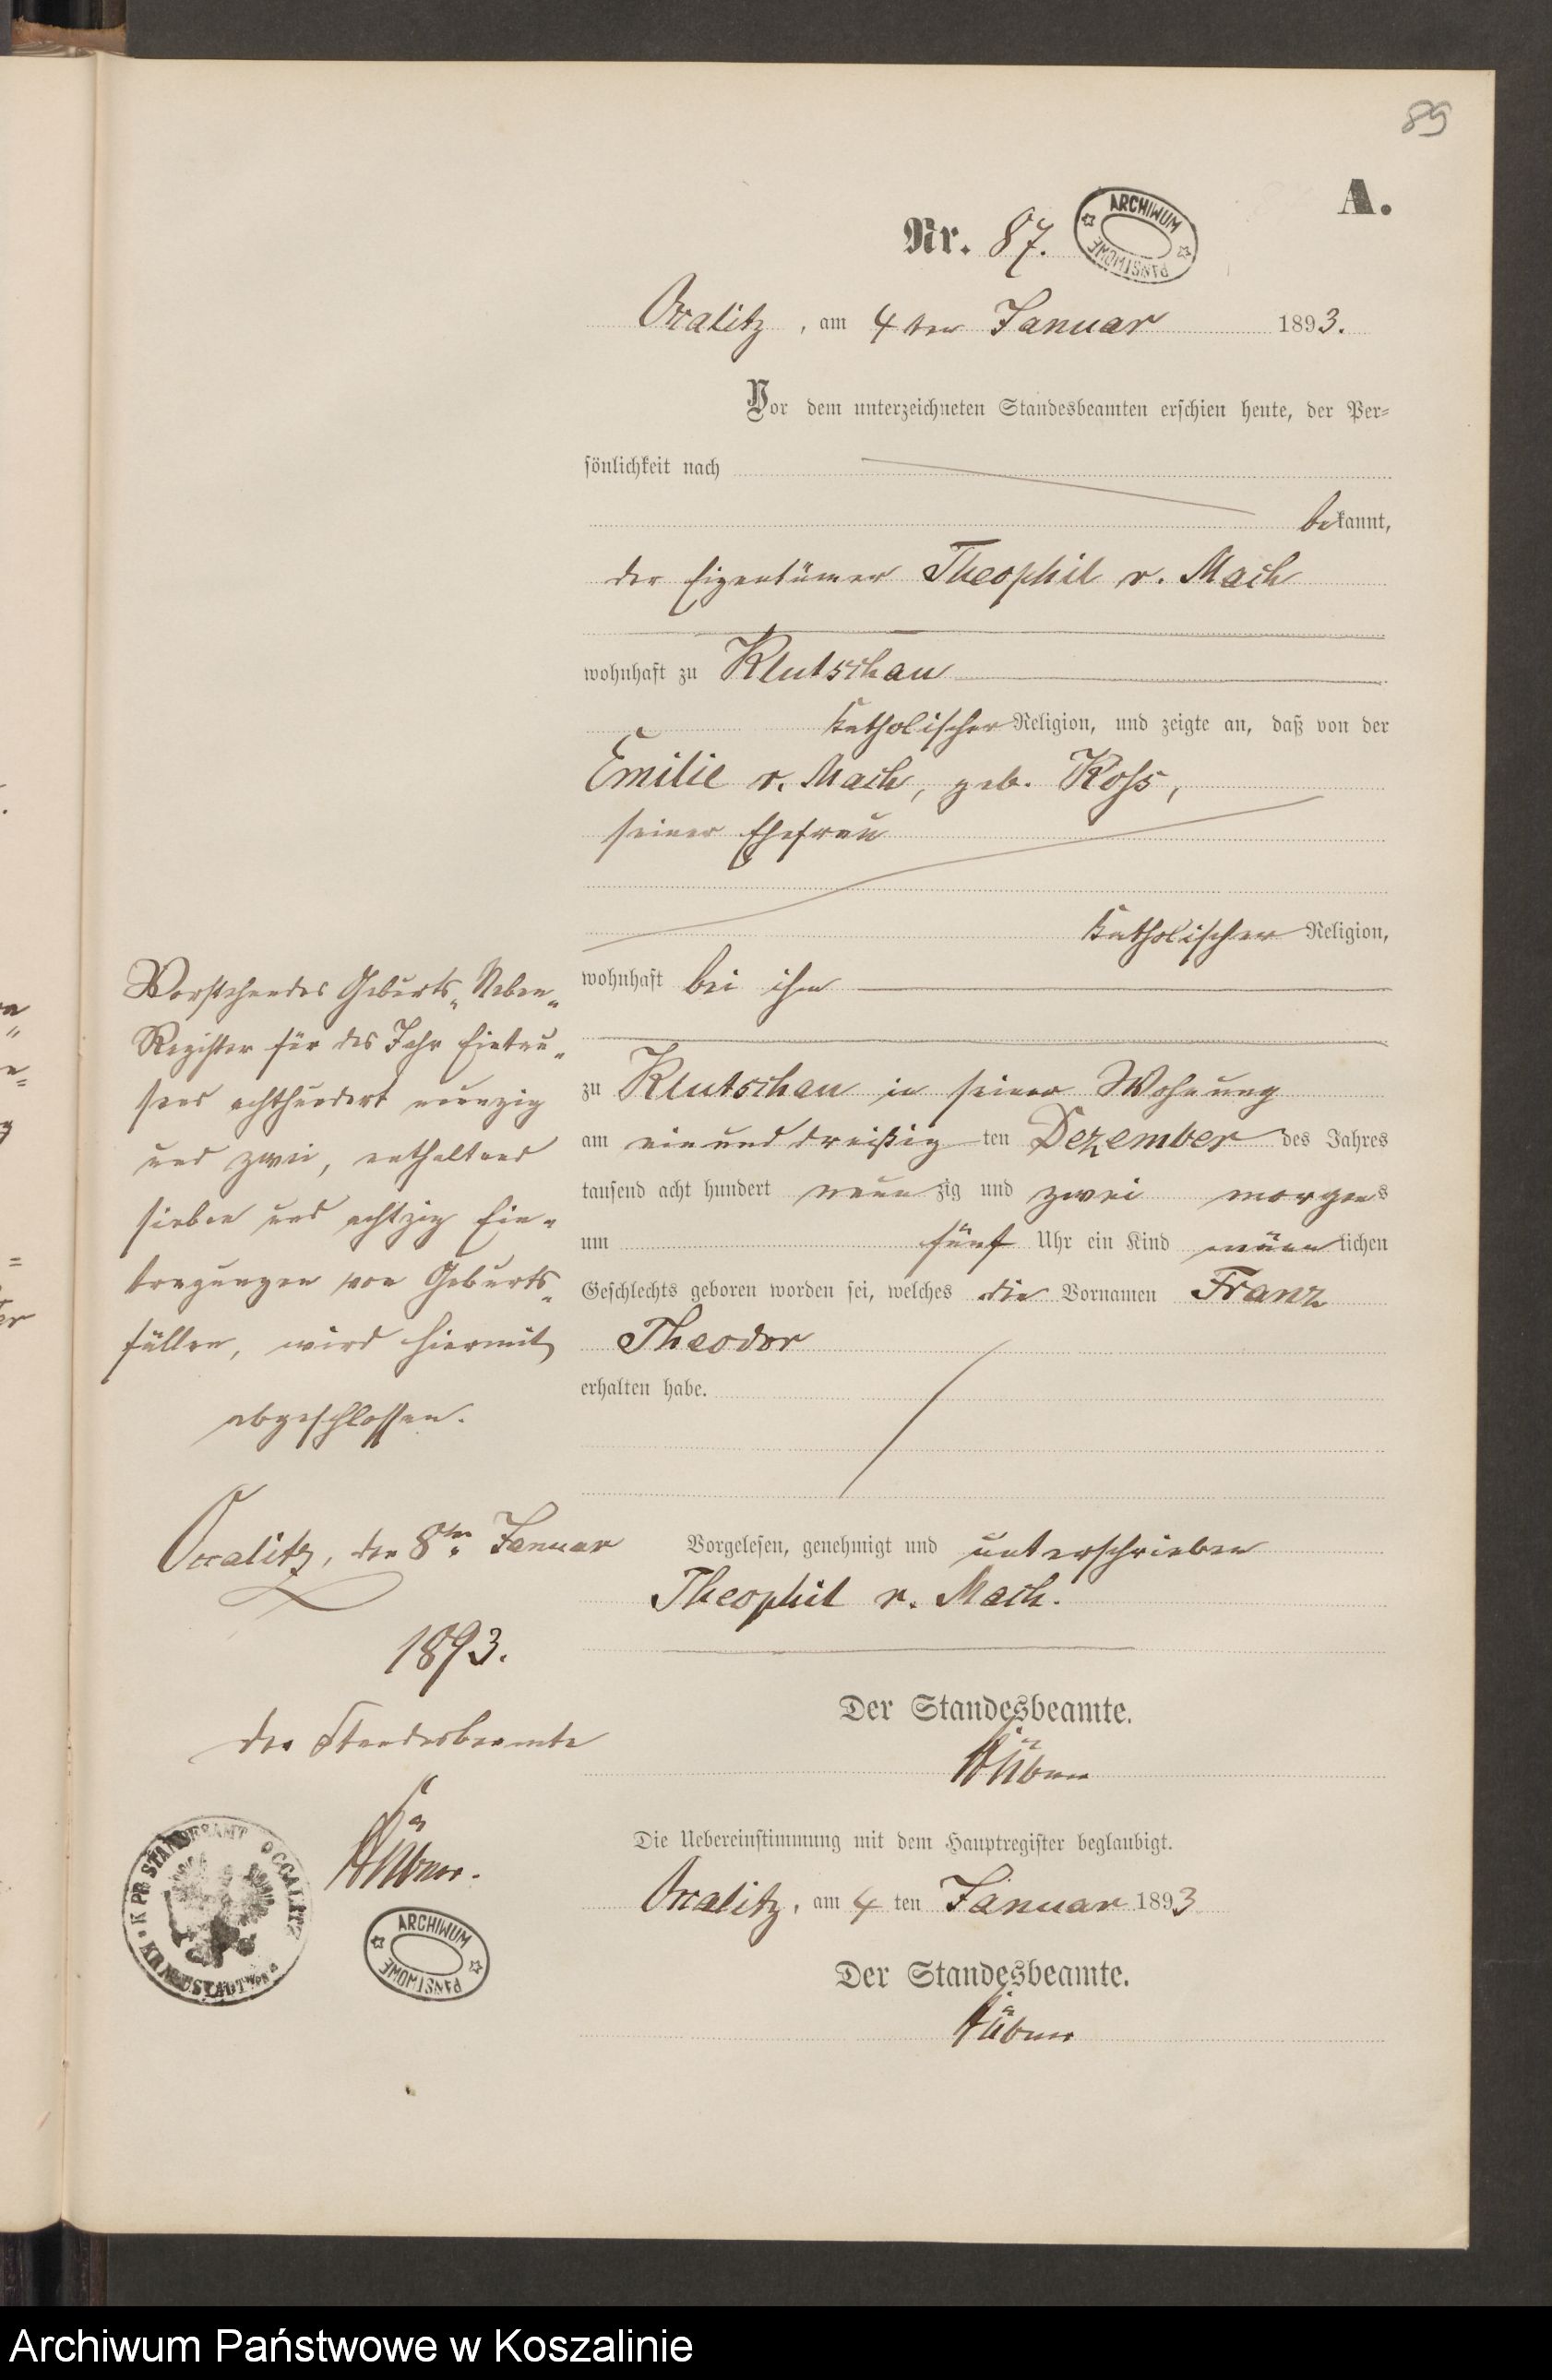 89
A.
Nr. 87.
ARCHIWUM PAŃSTWOWE
Occalitz, am 4ten Januar 1893.
Vor dem unterzeichneten Standesbeamten erschien heute, der Per=
sönlichkeit nach
bekannt,
der Eigentümer Theophil v. Mach
wohnhaft zu Klutschau
katholischer Religion, und zeigte an, daß von der
Emilie v. Mach, geb. Koss,
seiner Ehefrau
katholischer Religion,
wohnhaft bei ihm
zu Klutschau in seiner Wohnung
am einunddreißig ten Dezember des Jahres
tausend acht hundert neunzig und zwei morgens
um fünf Uhr ein Kind männlichen
Geschlechts geboren worden sei, welches die Vornamen Franz
Theodor
erhalten habe.
Vorgelesen, genehmigt und unterschrieben
Theophil v. Mach.
Der Standesbeamte.
Die Uebereinstimmung mit dem Hauptregister beglaubigt.
Occalitz, am 4 ten Januar 1893
Der Standesbeamte.
Vorstehendes Geburts-Neben-
Register für das Jahr Eintau-
send achthundert neunzig
und zwei, enthaltend
sieben und achtzig Ein-
tragungen von Geburts-
fällen, wird hiermit
abgeschlossen.
Occalitz, den 8ten Januar
1893.
Der Standesbeamte
K. PR. STANDESAMT OCCALITZ
ARCHIWUM PAŃSTWOWE
Archiwum Państwowe w Koszalinie